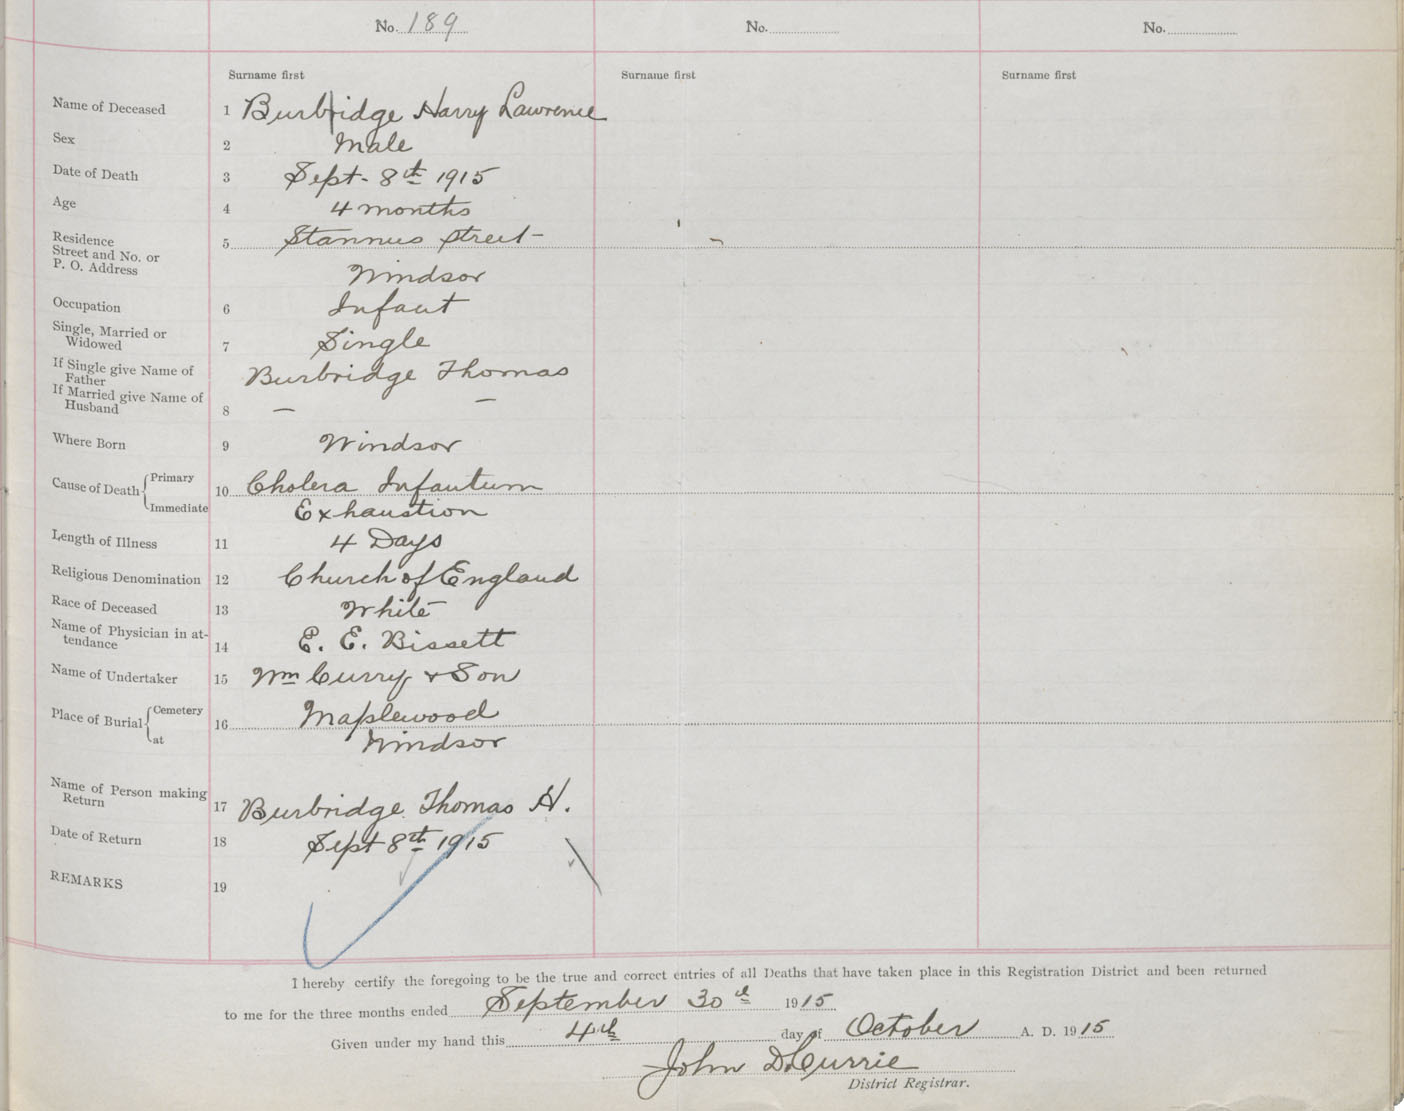 No. 189 No. No.
Surname first Surname first Surname first
Name of Deceased 1 Burbridge Harry Lawrence
Sex 2 Male
Date of Death 3 Sept. 8th 1915
Age 4 4 months
Residence
Street and No. or
P. O. Address
5 Stannus Street
Windsor
Occupation 6 Infant
Single, Married or
Widowed 7 Single
If Single give Name of
Father Burbridge Thomas
If Married give Name of
Husband 8 — —
Where Born 9 Windsor
Cause of Death Primary 10 Cholera Infantum
Immediate Exhaustion
Length of Illness 11 4 Days
Religious Denomination 12 Church of England
Race of Deceased 13 White
Name of Physician in at-
tendance 14 E. E. Bissett
Name of Undertaker 15 Wm Curry & Son
Place of Burial Cemetery 16 Maplewood
at Windsor
Name of Person making
Return 17 Burbridge Thomas H.
Date of Return 18 Sept 8th 1915
REMARKS 19
I hereby certify the foregoing to be the true and correct entries of all Deaths that have taken place in this Registration District and been returned
to me for the three months ended September 30th 1915
Given under my hand this 4th day of October A. D. 1915
John D Currie
District Registrar.